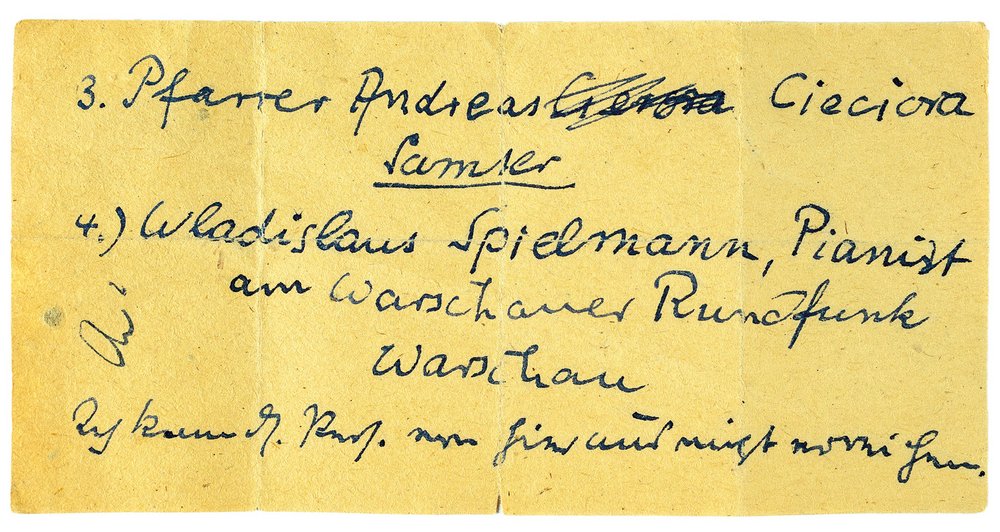 3. Pfarrer Andreas Cieciora
Samter
4.) Wladislaus Spielmann, Pianist
am Warschauer Rundfunk
Warschau
Ich kann von hier aus nicht erreichen.